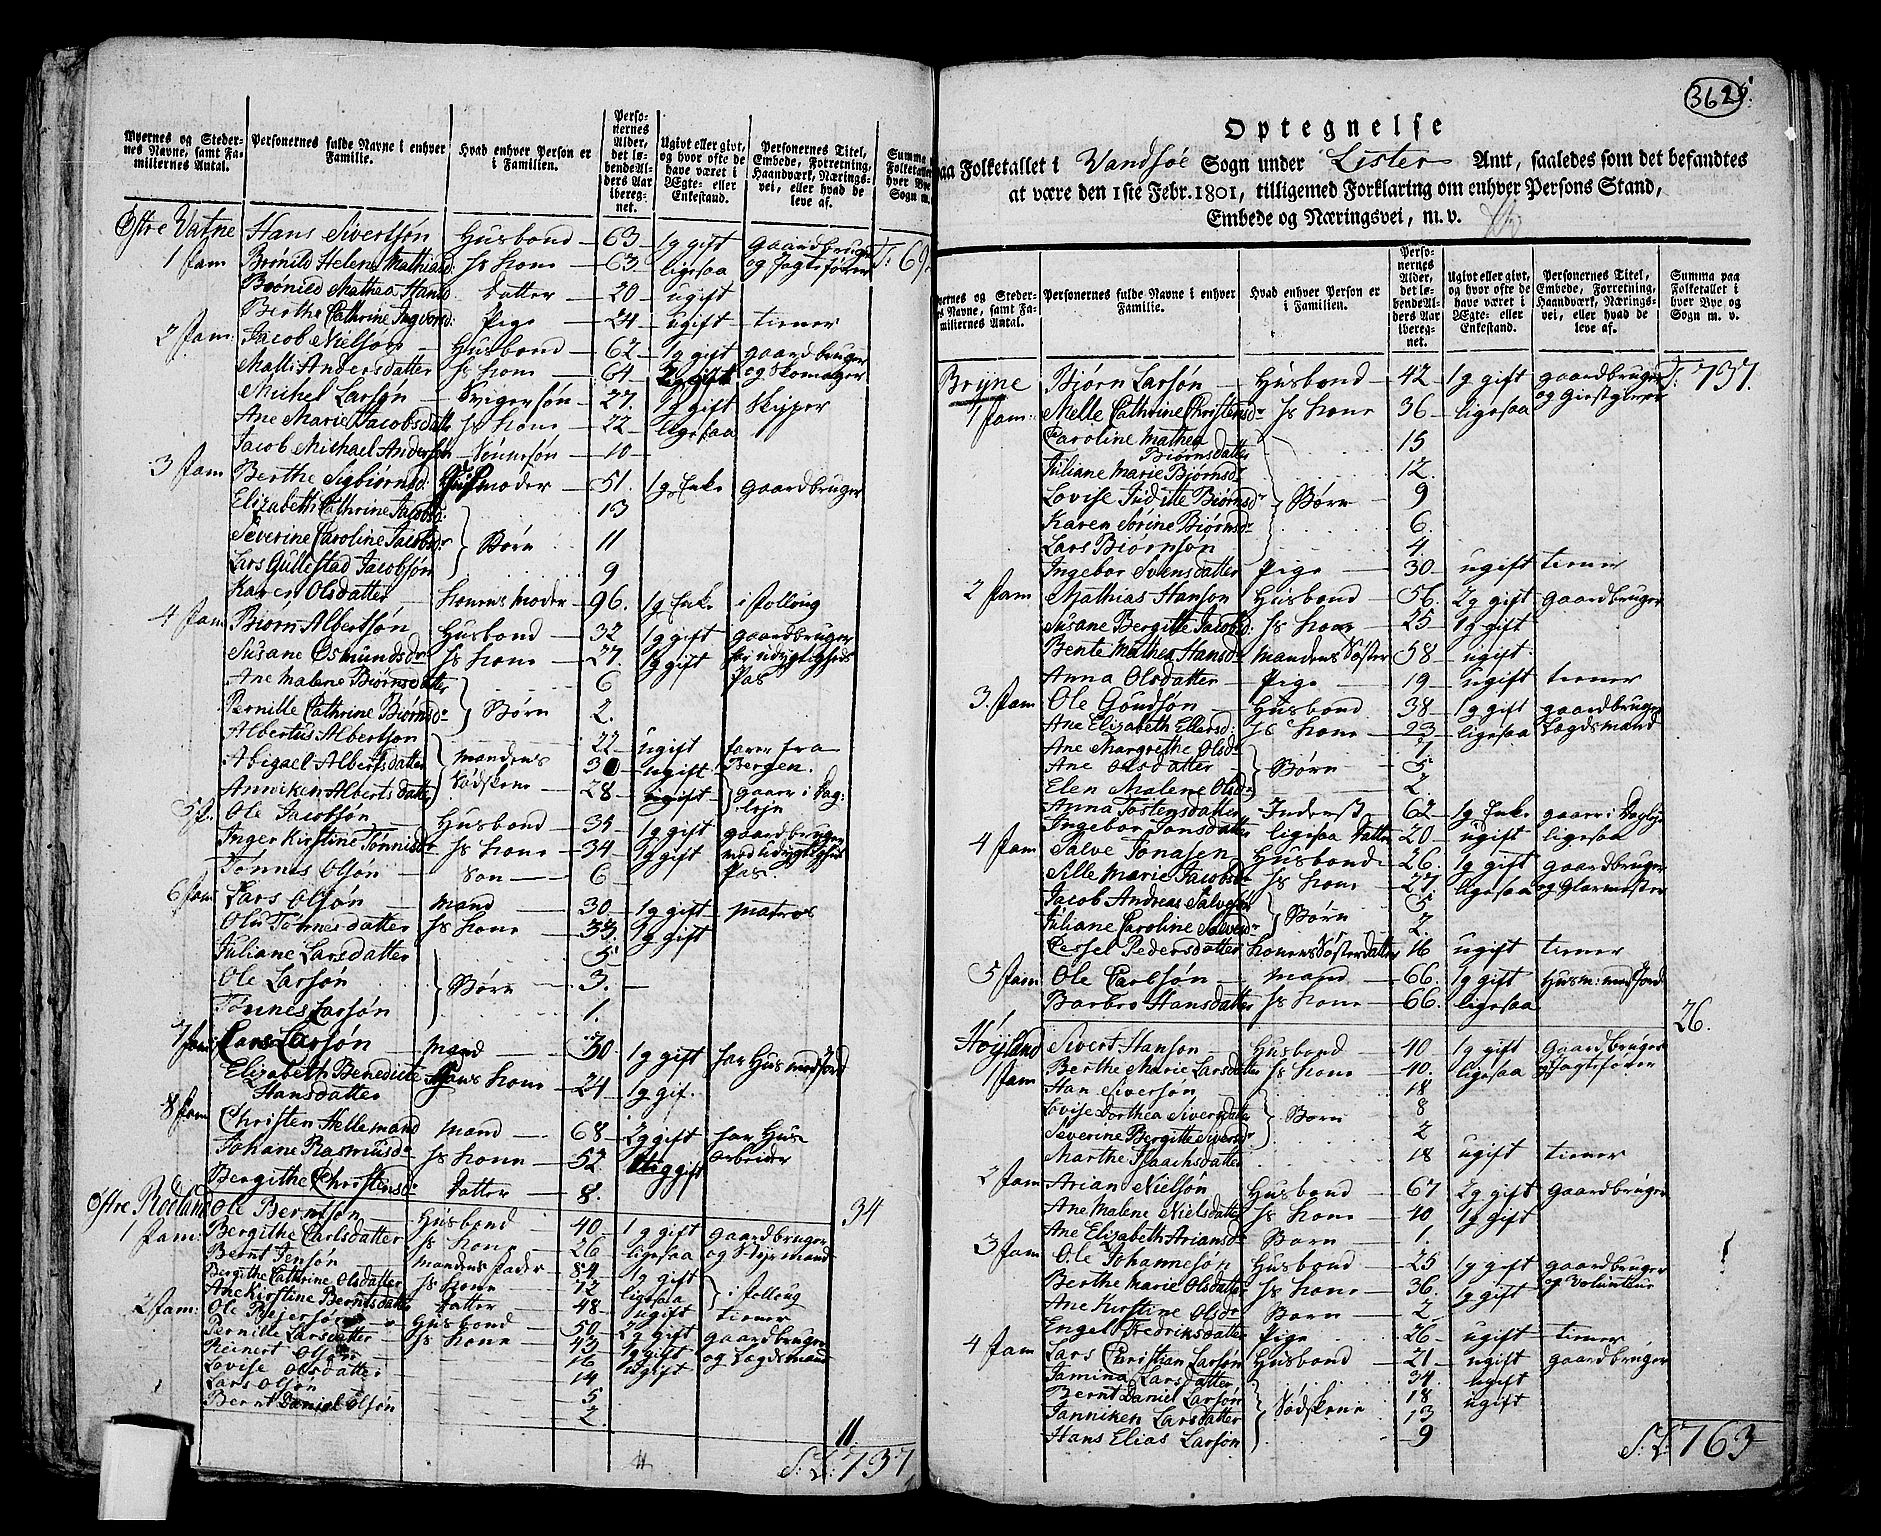 Byernes og Steder-
nes Navne, samt Fa-
miliernes Antal.
Personernes fulde Navne i enhver
Familie.
Hvad enhver Person er
i Familien.
Perso-
nernes
Alder,
det lø-
bende Al-
ders Aar
iberegnet.
Ugivt eller givt,
og hvor ofte de
have været i
Ægte- eller
Enkestand.
Personernes Titel,
Embede, Forretning,
Haandværk, Nærings-
vei, eller hvad de
leve af.
Summa
Folketallet
hver Bye
Sogn m.
Østre Vatne Hans Sivertsøn Husbond 63 1g gift gaardbruger
1 fam Brønild Helene Mathiasd: Hs Kone 63 ligesaa og Jagtsfører
Brønild Mathea Hansd Datter 20 ugift
Berthe Cathrine Ingvorsd: Pige 24 ugift tiener
2 fam: Jacob Nielsøn Husbond 62 1g gift gaardbruger
Malli Andersdatter Hs Kone 64 gift og Skomager
Michel Larsøn Svigersøn 27. 1g gift Skipper
Ane Marie Jacobsdatter Hs Kone 22 ligesaa
Jacob Michael Andersøn Sønnesøn 10
3 fam Berthe Sigbiørnsd: Husmoder 51. 1g Enke gaardbruger
Elizabeth Cathrine Jacobsd: 13
Severine Caroline Jacobsdr Børn 11
Lars Gullestad Jacobsøn 9
Karen Olsdatter Konens Moder 96. 1g Enke i folloug
4 fam Biørn Albertsøn Husbond 32 1g gift gaardbruger
Susane Osmundsdr Hs Kone 27. 1g gift for udygtigheds
Ane Malene Biørnsdatter 6 Pas
Pernille Cathrine Biørnsdr Børn 2.
Albertus Albertsøn 22 ugift farer fra
Abigael Albertsdatter mandens 30 ugift Bergen.
Anniken Albertsdatter Sødskene 28 ugift gaaer i Dag-
lejn
5 f. Ole Jacobsøn Husbond 35 1g gift gaardbruger
Inger Kirstine Tønnisdr Hs Kone 34 1g gift med Udygtigheds
Tønnes Olsøn Søn 6 Pas
6 fam Lars Olsøn mand 30 1g gift matros
Olu Tønnesdatter Hs Kone 33. 1g gift
Juliane Larsdatter 5
Ole Larsøn Børn 3.
Tønnes Larsøn 1.
7 fam Lars Larsøn mand 30 1g gift har Hus med Jord
Elizabeth Benedicte Hans Kone 24 1g gif.
Hansdatter
8 fam Christen Hellemand mand 68 2g gift har Hus
Johane Rasmusdr Hs Kone 52. gift Arbeider
Bergithe Christensd: Datter 8. 34
Østre Rødland Ole Berntsøn Husbond 40 1g gift gaardbruger
1 fam: Bergithe Carlsdatter Hs Kone 26 ligesaa og Styrmand
Bernt Jensøn mandens Fader 84 1g gift
Bergithe Cathrine Olsdatter Hs Kone 72 ligesaa i folloug
Ane Kirstine Berntsdatter Datter 48 ugift tiener
2 fam: Ole Rejersøn Husbond 50 2g gift gaardbruger
Pernille Larsdatter Hs Kone 43 1g gift og Lagdsmand
Reinert Olsøn 16 ugift
Lovise Olsdatter 14
Lars Olsøn 5
Bernt Daniel Olsøn 2. 11.
S: L: 737
362
Optegnelse
paa Folketallet i Vandsøe Sogn under Lister Amt, saaledes som det befandtes
at være den 1ste Febr. 1801, tilligemed Forklaring om enhver Persons Stand,
Embede og Næringsvei, m. v.
Byernes og Steder-
nes Navne, samt Fa-
miliernes Antal.
Personernes fulde Navne i enhver
Familie.
Hvad enhver Person er
i Familien.
Perso-
nernes
Alder,
det lø-
bende Al-
ders Aar
ibereg-
net.
Ugivt eller givt,
og hvor ofte de
have været i
Ægte- eller
Enkestand.
Personernes Titel,
Embede, Forretning,
Haandværk, Nærings-
vei, eller hvad de
leve af.
Summa paa
Folketallet i
hver Bye og
Sogn m. v.
Bryne Biørn Larsøn Husbond 42 1g gift gaardbruger T: 737.
1 fam: Melle Cathrine Christensdr Hs Kone 36 ligesaa og Giestgiver
Caroline Mathea 15
Biørnsdatter
Juliane Marie Biørnsd: 12.
Lovise Juditte Biørnsdr Børn 9
Karen Sørine Biørnsdr 6.
Lars Biørnsøn 4.
Ingebor Svensdatter Pige 30 ugift tiener
2 fam Mathias Hansøn Husbond 56. 2g gift gaardbruger
Susane Bergitte Jacobsd: Hs Kone 25 1g gift
Bente Mathea Hansdr mandens Søster 58 ugift.
Anna Olsdatter Pige 19 ugift tiener
3. fam Ole Goudsøn Husbond 38 1g gift gaardbruger
Ane Elizabeth Ellersd: Hs Kone 23 ligesaa Lagdsmand
Ane Margrethe Olsdr 7
Ane Olsdatter Børn 5
Elen Malene Olsdr 2.
Anna Tostensdatter Inderst 62 1g Enke gaaer i Dagleje
Ingebor Jonsdatter ligesaa Datter 20 ugift ligesaa
4 fam Salve Jonasen Husbond 26. 1g gift gaardbruger
Sille Marie Jacobsdr Hs Kone 27. ligesaa og Glarmester
Jacob Andreas Salvesøn 5
Juliane Caroline Salvesdr Børn 2.
Cersel Pedersdatter Konens Søsterdatter 16 ugift tiener
5 fam Ole Carlsøn mand 66. 1g gift Husm: med Jord
Barbro Hansdatter Hs Kone 66. ligesaa 26.
Høyland Sivert Hansøn Husbond 40 1g gift Gaardbruger
1 fam Berthe Marie Larsdatter Hs Kone 40. ligesaa og Jagtsfører
Han Siversøn 18
Lovise Dorthea Siversdatter Børn 8
Severine Bergitte Siversdr 2
Marthe Isaachsdatter 18 ugift tiener
2 fam Arian Nielsøn Husbond 67 2g gift gaardbruger
Ane Malene Nielsdatter Hs Kone 40 1g gift
Ane Elizabeth Ariansdr Barn 1.
3 fam Ole Johannesøn Husbond 25 1g gift gaardbruger
Berthe Marie Olsdatter Hs Kone 36. 1g gift og Volunteur
Ane Kirstine Olsdr Barn 2
Engel Fredriksdatter Pige 26 ugift tiener
4 fam Lars Christian Larsøn Husbond 21 ugift gaardbruger
Jamina Larsdatter 34 ugift
Bernt Daniel Larsøn Sødskene 18 ugift
Janniken Larsdatter 13
Hans Elias Larsøn 9 S: L: 763